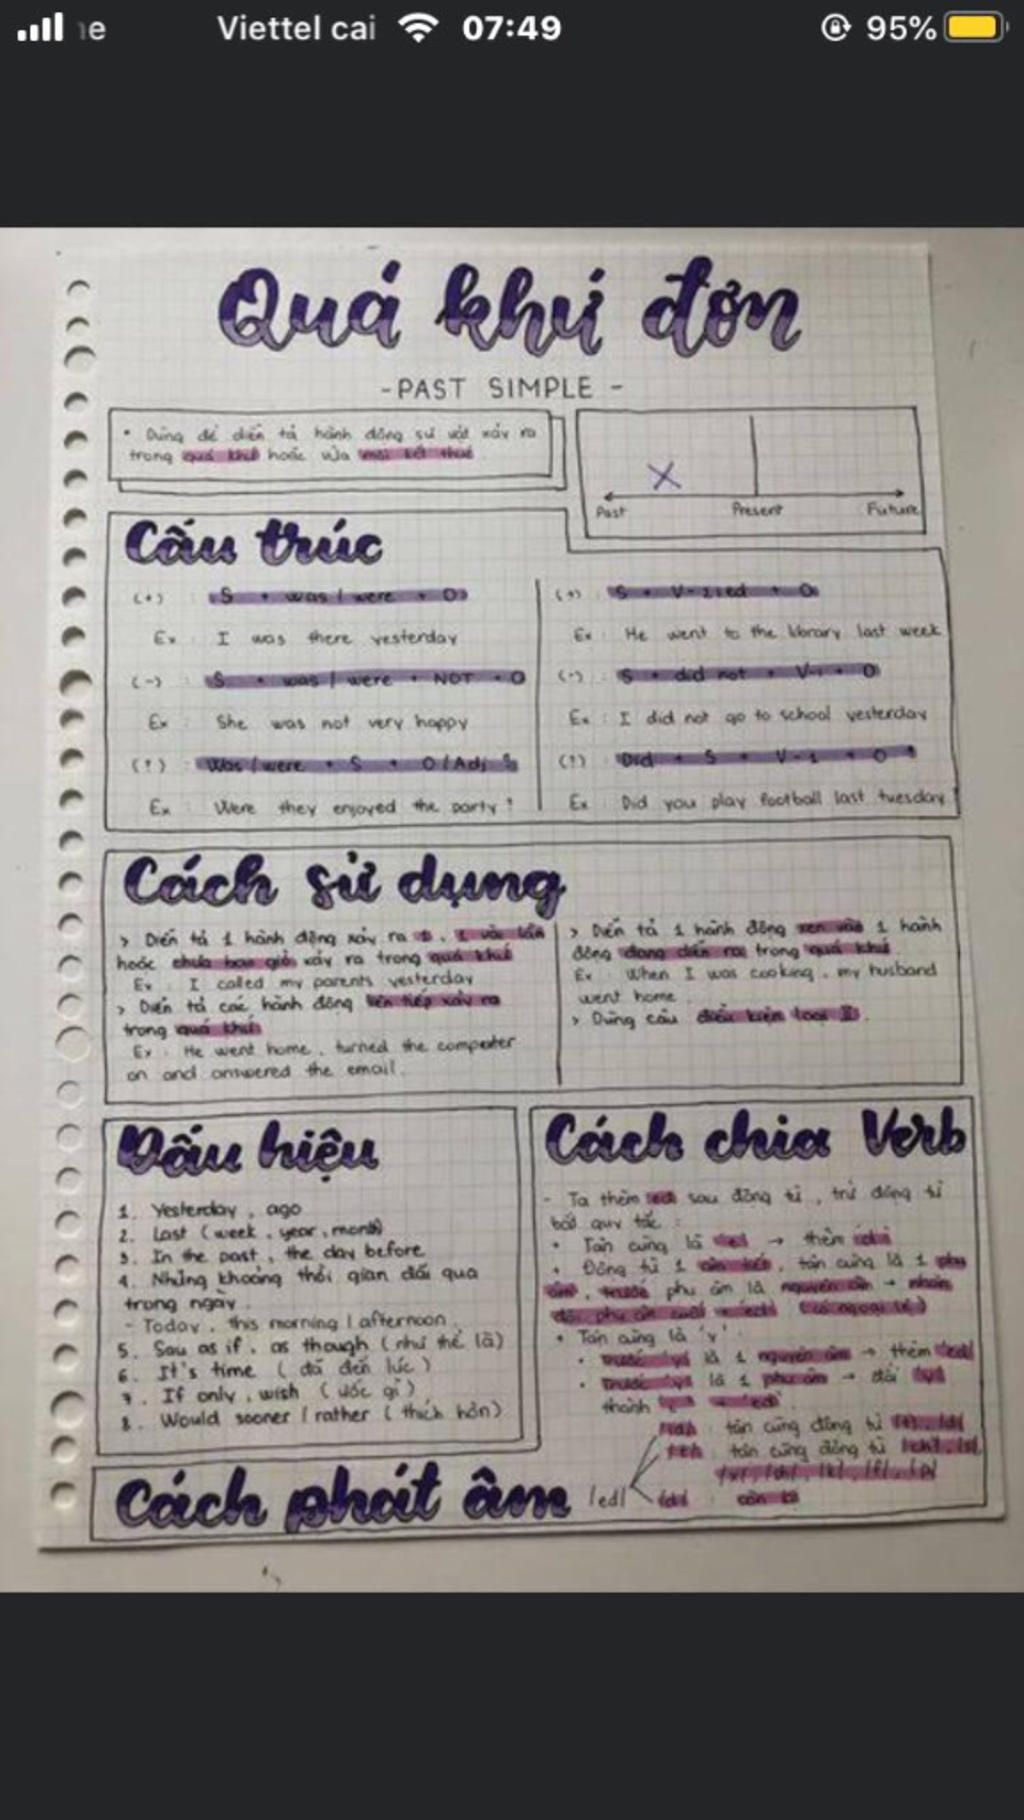 ne Viettel cai 07:49 95%
Quá khứ đơn
- PAST SIMPLE -
• Dùng để diễn tả hành động sự vật xảy ra
trong quá khứ hoặc vừa mới kết thúc
Past Present Future
Cấu trúc
(+) : S + was / were + O
Ex : I was there yesterday
(-) : S + was / were + NOT + O
Ex : She was not very happy
(?) : Was / were + S + O / Adj ?
Ex : Were they enjoyed the party ?
(+) : S + V-2 / ed + O
Ex : He went to the library last week
(-) : S + did not + V-1 + O
Ex : I did not go to school yesterday
(?) : Did + S + V-1 + O ?
Ex : Did you play football last tuesday ?
Cách sử dụng
> Diễn tả 1 hành động xảy ra 1, 1 vài lần
hoặc chưa bao giờ xảy ra trong quá khứ
Ex : I called my parents yesterday
> Diễn tả các hành động liên tiếp xảy ra
trong quá khứ
Ex : He went home, turned the computer
on and answered the email.
> Diễn tả 1 hành động xen vào 1 hành
động đang diễn ra trong quá khứ
Ex : When I was cooking, my husband
went home.
> Dùng câu điều kiện loại II.
Dấu hiệu
1. Yesterday, ago
2. Last (week, year, month)
3. In the past, the day before
4. Những khoảng thời gian đã qua
trong ngày.
- Today, this morning / afternoon
5. Sau as if, as though (như thể là)
6. It's time (đã đến lúc)
7. If only, wish (ước gì)
8. Would sooner / rather (thích hơn)
Cách chia Verb
- Ta thêm ed sau động từ, trừ động từ
bất quy tắc :
• Tận cùng là → thêm
• Động từ 1 âm tiết, tận cùng là 1 phụ
âm, trước phụ âm là nguyên âm → nhân
đôi phụ âm cuối + 'ed' (có ngoại lệ)
• Tận cùng là 'y'
• Trước 'y' là 1 nguyên âm → thêm 'ed'
• Trước 'y' là 1 phụ âm → đổi 'y'
thành + 'ed'
Cách phát âm
/ed/
/id/ : tận cùng động từ /t/, /d/
/t/ : tận cùng động từ /ch/, /s/
/x/, /sh/, /k/, /f/, /p/
/d/ : còn lại